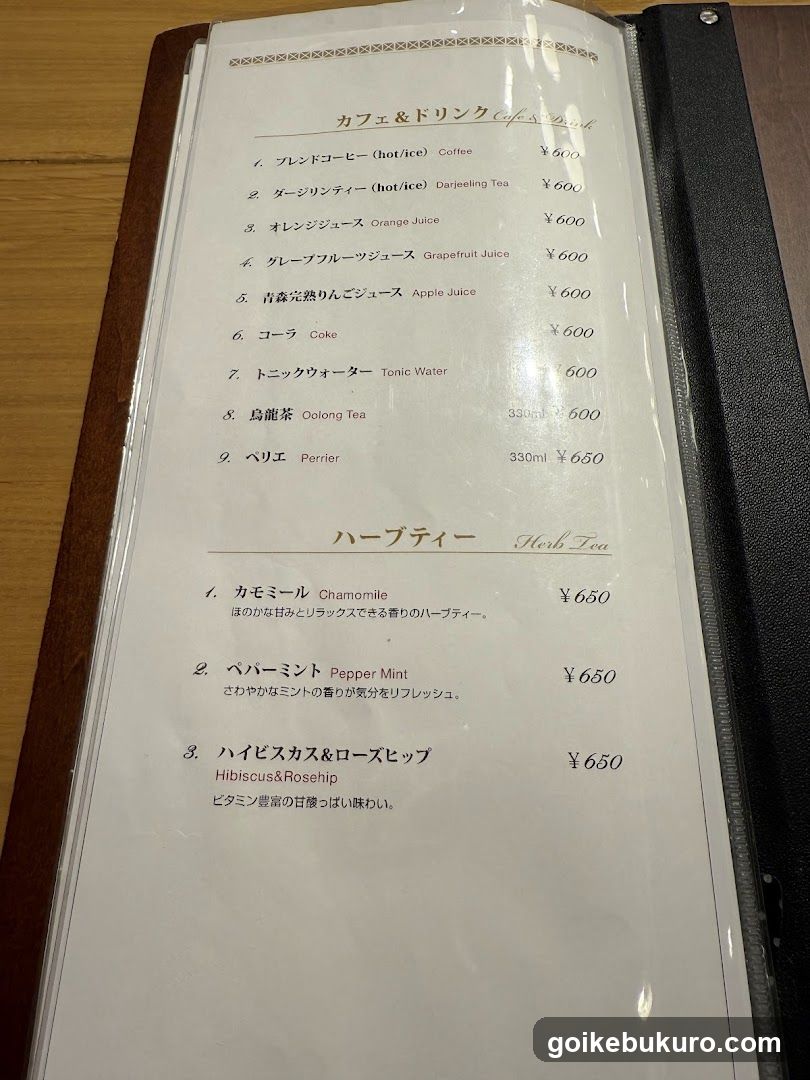 カフェ&ドリンク Cafe & Drink
1. ブレンドコーヒー (hot/ice) Coffee ¥600
2. ダージリンティー (hot/ice) Darjeeling Tea ¥600
3. オレンジジュース Orange Juice ¥600
4. グレープフルーツジュース Grapefruit Juice ¥600
5. 青森完熟りんごジュース Apple Juice ¥600
6. コーラ Coke ¥600
7. トニックウォーター Tonic Water ¥600
8. 烏龍茶 Oolong Tea 330ml ¥600
9. ペリエ Perrier 330ml ¥650
ハーブティー Herb Tea
1. カモミール Chamomile ¥650
ほのかな甘みとリラックスできる香りのハーブティー。
2. ペパーミント Pepper Mint ¥650
さわやかなミントの香りが気分をリフレッシュ。
3. ハイビスカス&ローズヒップ ¥650
Hibiscus&Rosehip
ビタミン豊富の甘酸っぱい味わい。
goikebukuro.com